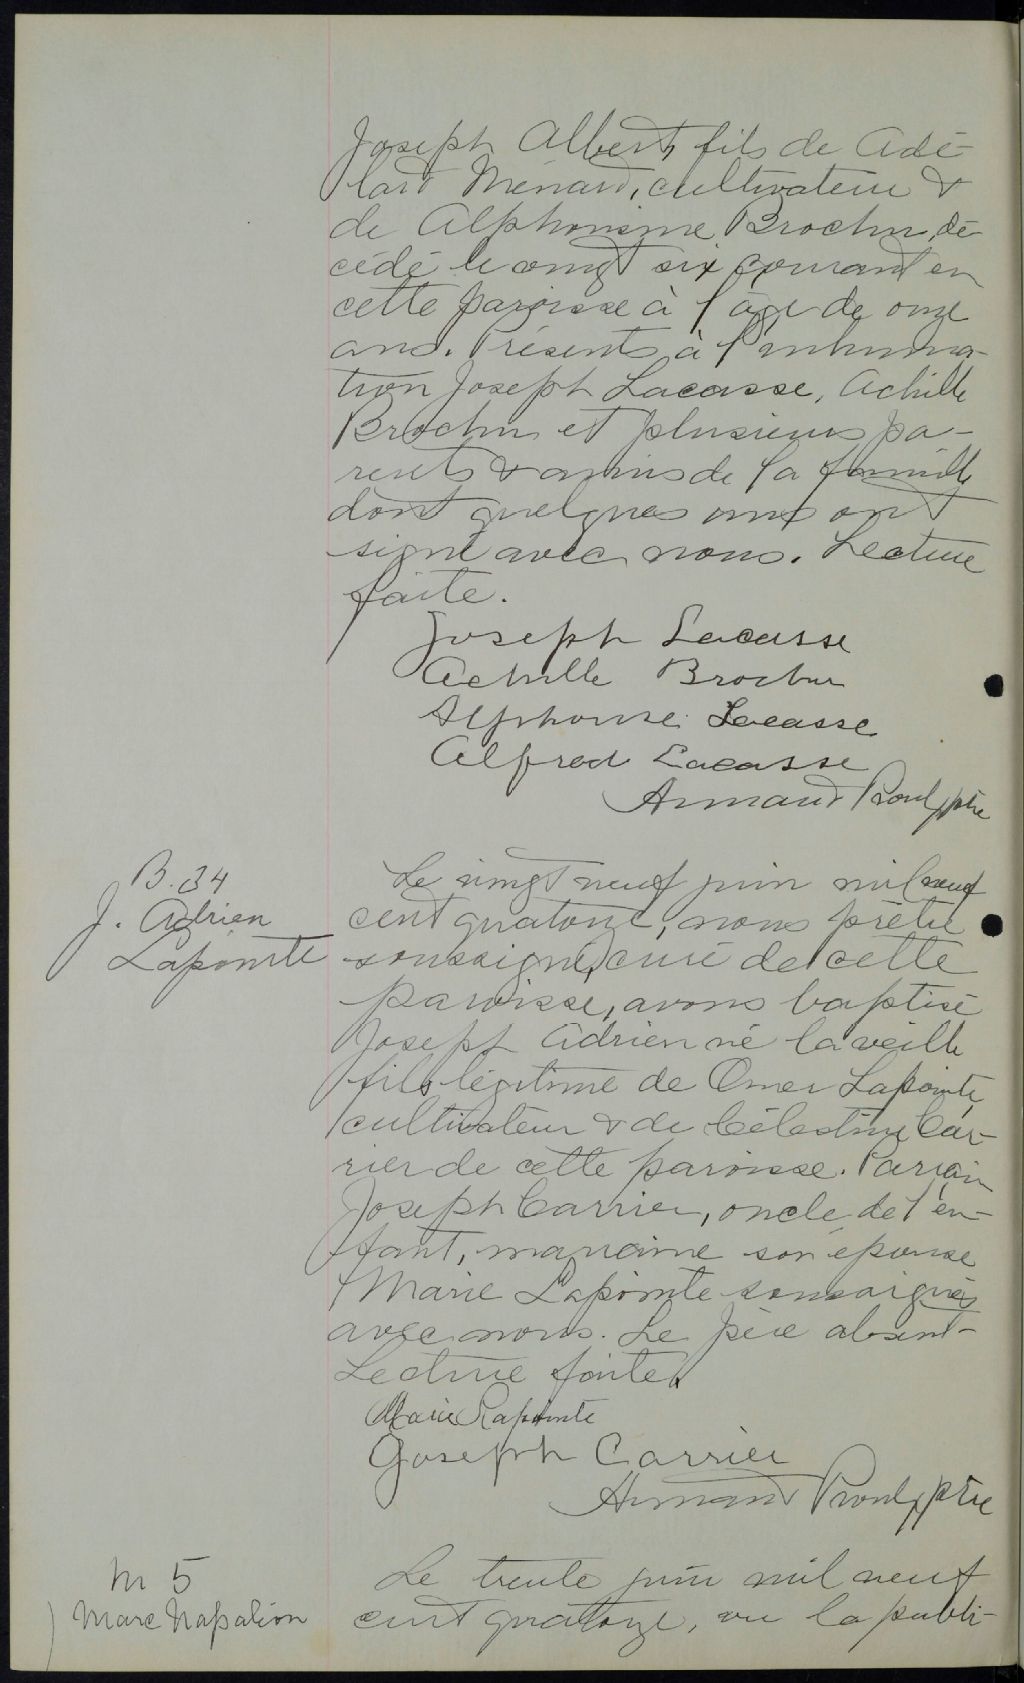 Joseph Albert, fils de Adé-
lard Ménard, cultivateur &
de Alphonsine Brochu, dé-
cédé le vingt six courant en
cette paroisse à l'âge de onze
ans. Présents à l'inhuma-
tion Joseph Lacasse, Achille
Brochu et plusieurs pa-
rents & amis de la famille
dont quelques uns ont
signé avec nous. Lecture
faite.
Joseph Lacasse
Achille Brochu
Alphonse Lacasse
Alfred Lacasse
Armand Proulx ptre
B. 34
J. Adrien
Lapointe
Le vingt neuf juin mil neuf
cent quatorze, nous prêtre
soussigné, curé de cette
paroisse, avons baptisé
Joseph Adrien né la veille
fils légitime de Omer Lapointe,
cultivateur & de Célestine Car-
rier de cette paroisse. Parrain
Joseph Carrier, oncle de l'en-
fant, marraine son épouse
Marie Lapointe soussignés
avec nous. Le père absent-
Lecture faite.
Marie Lapointe
Joseph Carrier
Armand Proulx ptre
M 5
Marc Napalion
Le trente juin mil neuf
cent quatorze, vu la publi-